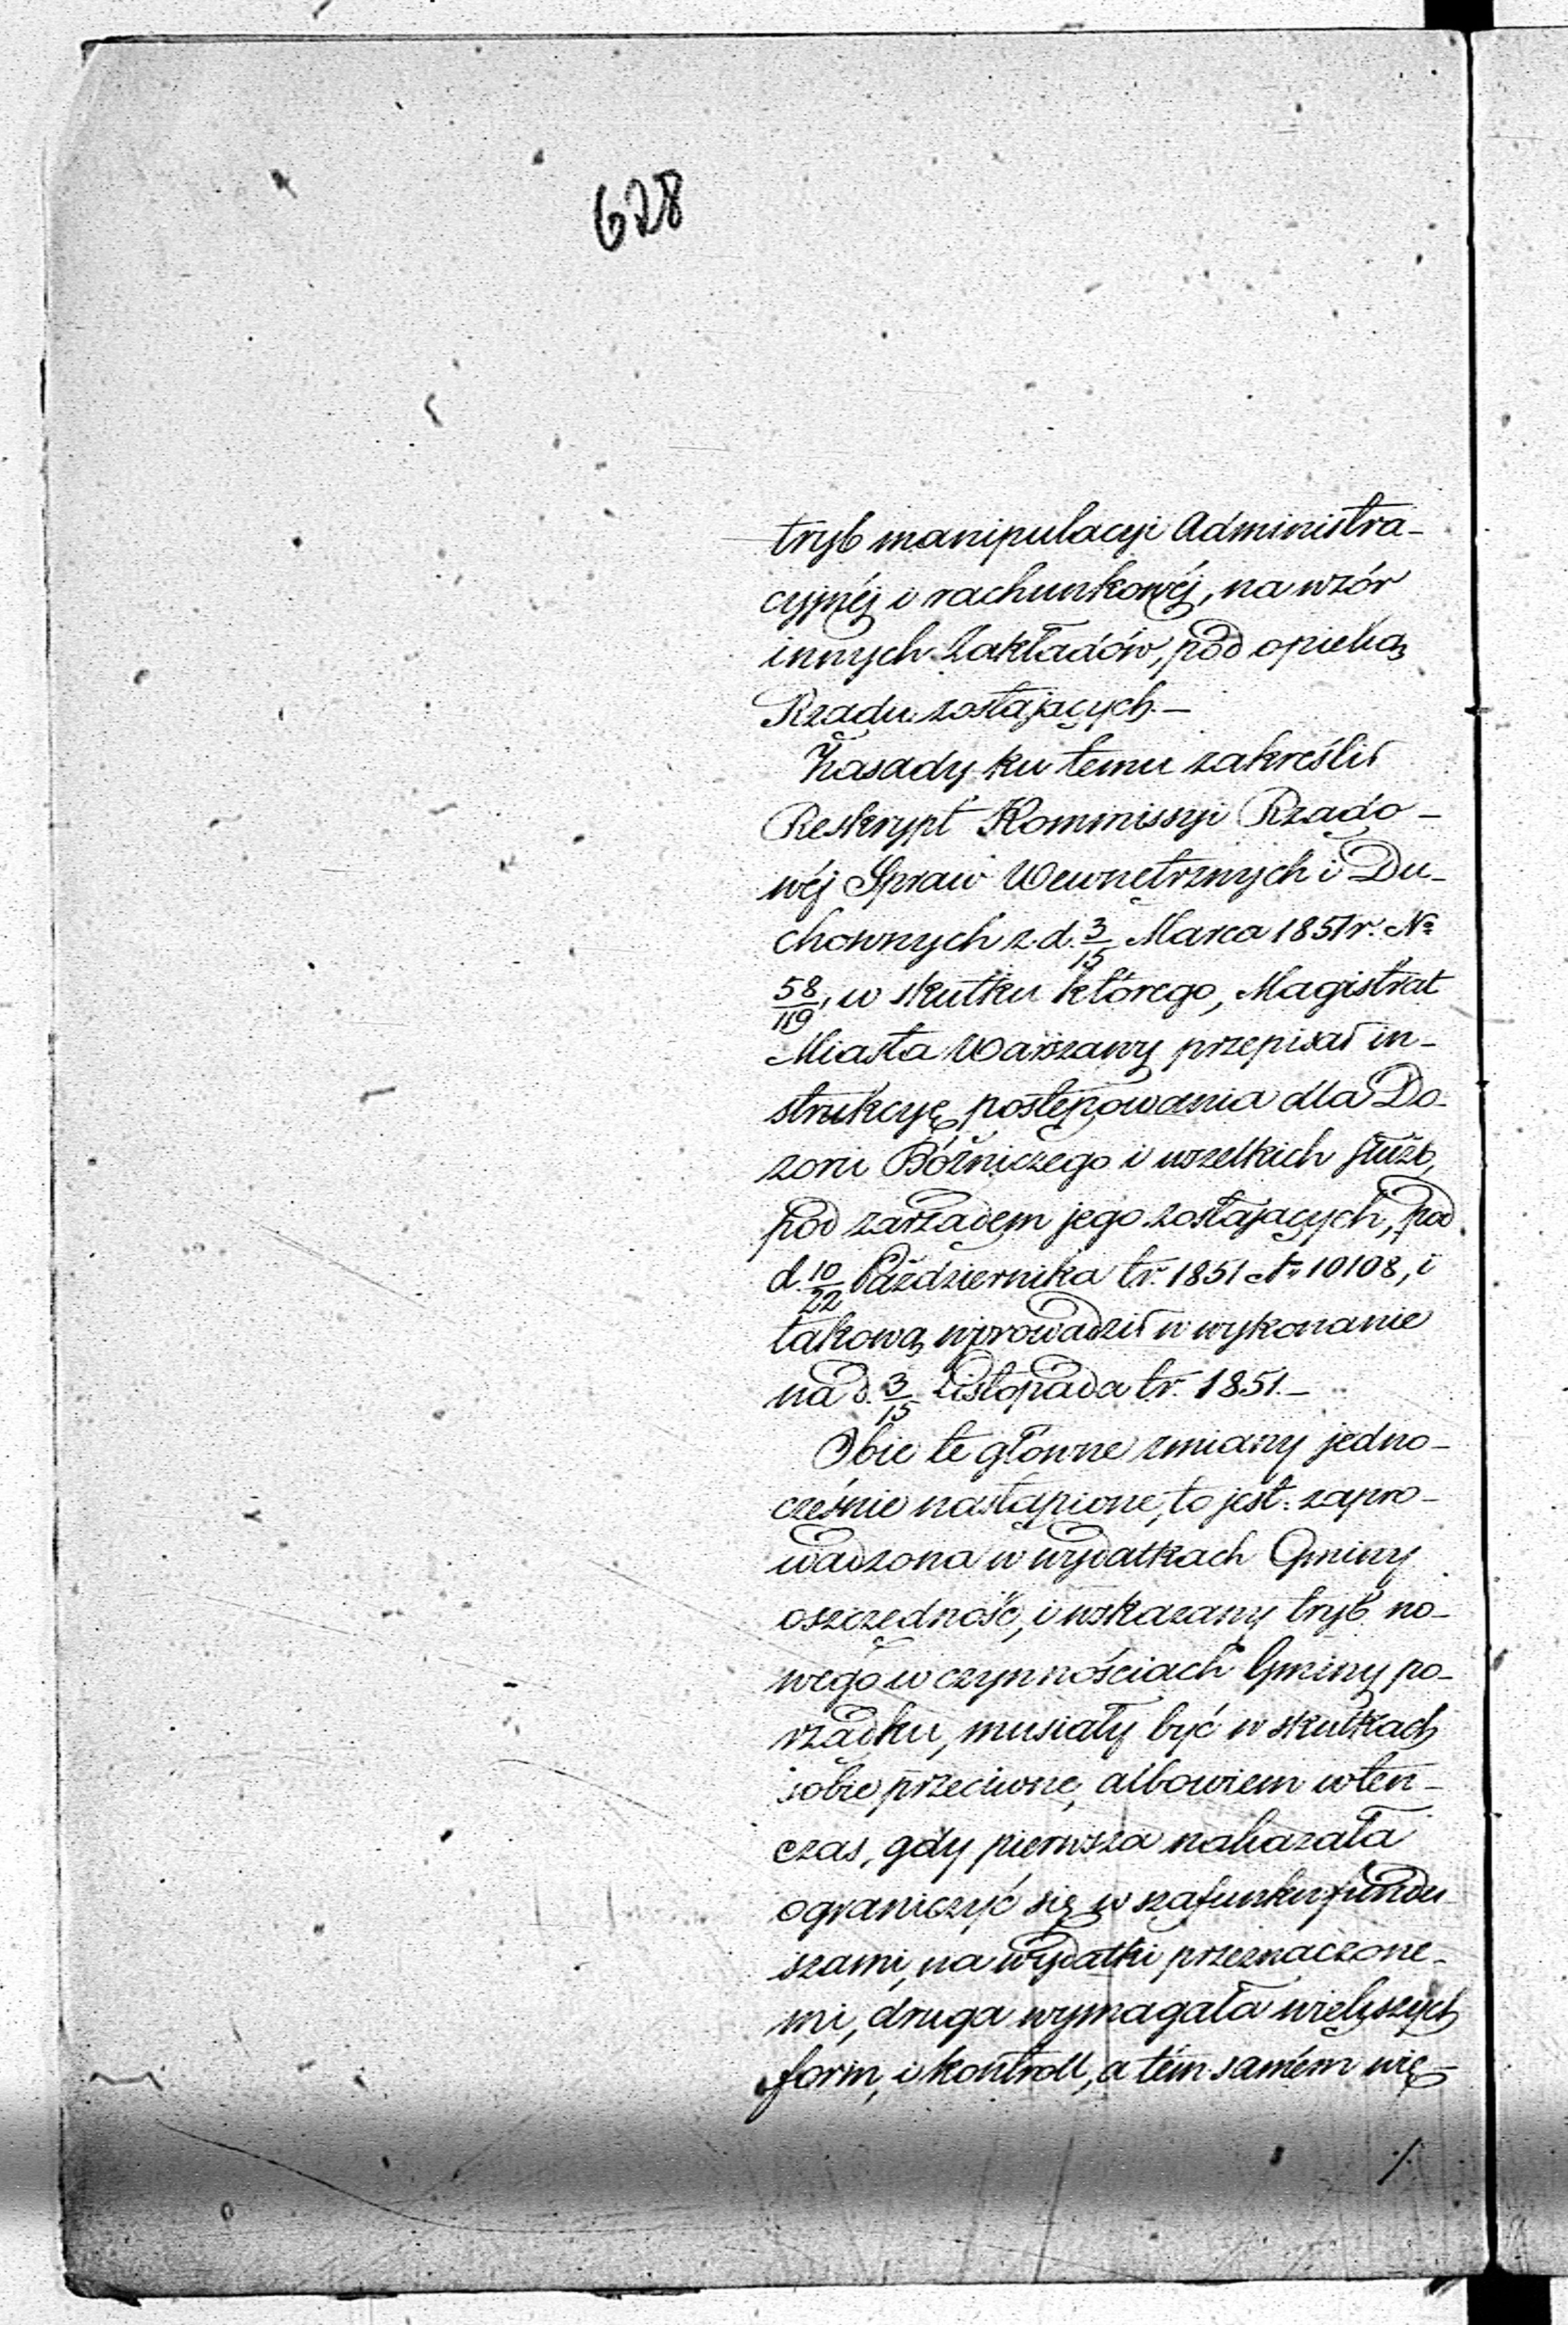 628
tryb manipulacyi Administra-
cyjnéj i rachunkowéj, na wzór
innych Zakładów, pod opieką
Rządu zostających.-
Zasady ku temu zakreślił
Reskrypt Kommissyi Rządo-
wéj Spraw Wewnętrznych i Du-
chownych z d. 3/15 Marca 1851 r. №
58/119, w skutku którego, Magistrat
Miasta Warszawy przepisał in-
strukcyę postępowania dla Do-
zoru Bóżniczego i wszelkich służb,
pod zarządem jego zostających, pod
d. 10/22 Października tr. 1851 № 10108, i
takową wprowadził w wykonanie
na d. 3/15 Listopada tr. 1851.-
Obie te główne zmiany jedno-
cześnie nastąpione, to jest: zapro-
wadzona w wydatkach Gminy
oszczędność, i wskazany tryb no-
wego w czynnościach Gminy po-
rządku, musiały być w skutkach
sobie przeciwne, albowiem wten-
czas, gdy pierwsza nakazała
ograniczyć się w szafunku fundu
szami, na wydatki przeznaczone-
mi, druga wymagała większych
form, i kontroll, a tém samém wię-
./.